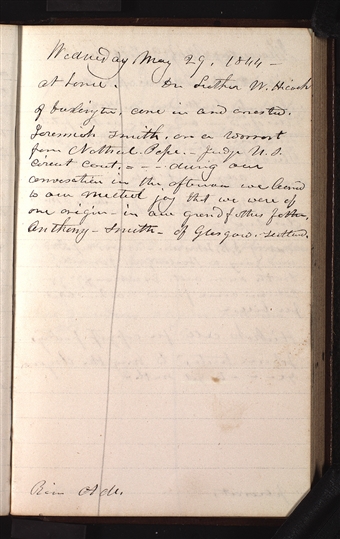 Wednesday May 29, 1844 -
at home. Dr Luther W. Hicock
of Burlington, came in and arrested.
Jeremiah Smith, on a Warrant
from Nathnel. Pope - Judge U. S.
Circuit Court; - - during our
conversation in the afternoon we learned
to our mutual joy that we were of
one origin - in our grandfathers father.
Anthony - Smith - of Glasgow - Scotland.